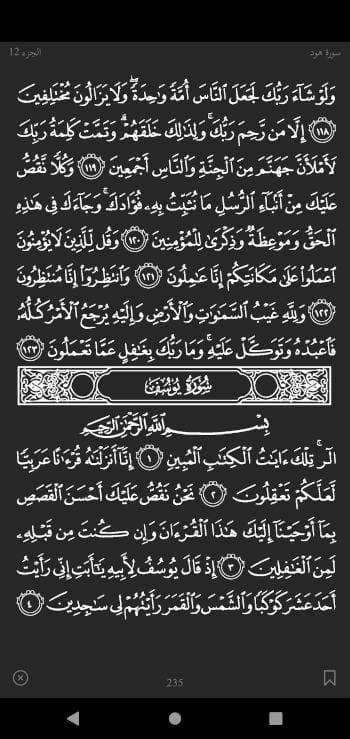 سورة هود
الجزء 12
وَلَوْ شَآءَ رَبُّكَ لَجَعَلَ ٱلنَّاسَ أُمَّةً وَٰحِدَةً ۖ وَلَا يَزَالُونَ مُخْتَلِفِينَ
١١٨ إِلَّا مَن رَّحِمَ رَبُّكَ ۚ وَلِذَٰلِكَ خَلَقَهُمْ ۗ وَتَمَّتْ كَلِمَةُ رَبِّكَ
لَأَمْلَأَنَّ جَهَنَّمَ مِنَ ٱلْجِنَّةِ وَٱلنَّاسِ أَجْمَعِينَ ١١٩ وَكُلًّا نَّقُصُّ
عَلَيْكَ مِنْ أَنۢبَآءِ ٱلرُّسُلِ مَا نُثَبِّتُ بِهِۦ فُؤَادَكَ ۚ وَجَآءَكَ فِى هَٰذِهِ
ٱلْحَقُّ وَمَوْعِظَةٌ وَذِكْرَىٰ لِلْمُؤْمِنِينَ ١٢٠ وَقُل لِّلَّذِينَ لَا يُؤْمِنُونَ
ٱعْمَلُوا۟ عَلَىٰ مَكَانَتِكُمْ إِنَّا عَٰمِلُونَ ١٢١ وَٱنتَظِرُوٓا۟ إِنَّا مُنتَظِرُونَ
١٢٢ وَلِلَّهِ غَيْبُ ٱلسَّمَٰوَٰتِ وَٱلْأَرْضِ وَإِلَيْهِ يُرْجَعُ ٱلْأَمْرُ كُلُّهُۥ
فَٱعْبُدْهُ وَتَوَكَّلْ عَلَيْهِ ۚ وَمَا رَبُّكَ بِغَٰفِلٍ عَمَّا تَعْمَلُونَ ١٢٣
سُورَةُ يُوسُفَ
بِسْمِ ٱللَّهِ ٱلرَّحْمَٰنِ ٱلرَّحِيمِ
الٓر ۚ تِلْكَ ءَايَٰتُ ٱلْكِتَٰبِ ٱلْمُبِينِ ١ إِنَّآ أَنزَلْنَٰهُ قُرْءَٰنًا عَرَبِيًّا
لَّعَلَّكُمْ تَعْقِلُونَ ٢ نَحْنُ نَقُصُّ عَلَيْكَ أَحْسَنَ ٱلْقَصَصِ
بِمَآ أَوْحَيْنَآ إِلَيْكَ هَٰذَا ٱلْقُرْءَانَ وَإِن كُنتَ مِن قَبْلِهِۦ
لَمِنَ ٱلْغَٰفِلِينَ ٣ إِذْ قَالَ يُوسُفُ لِأَبِيهِ يَٰٓأَبَتِ إِنِّى رَأَيْتُ
أَحَدَ عَشَرَ كَوْكَبًا وَٱلشَّمْسَ وَٱلْقَمَرَ رَأَيْتُهُمْ لِى سَٰجِدِينَ ٤
235